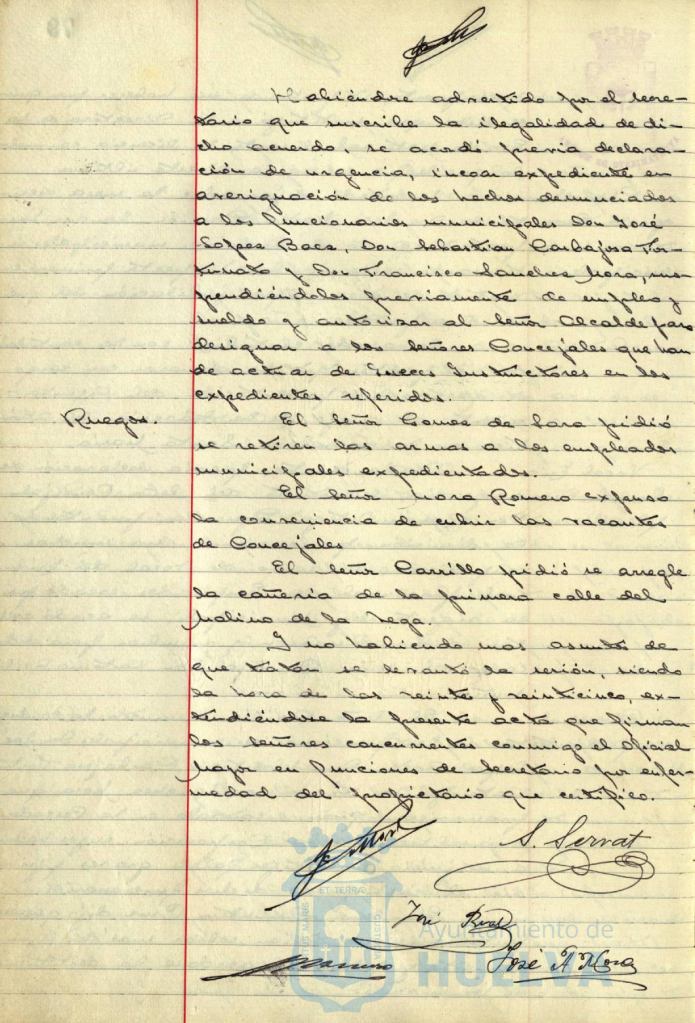 Habiéndose advertido por el secre-
tario que suscribe la ilegalidad de di-
cho acuerdo, se acordó previa declara-
ción de urgencia, incoar expediente en
averiguación de los hechos denunciados
a los funcionarios municipales Don José
López Baca, Don Sebastian Carbajosa For-
tunato y Don Francisco Sanchez Mora, sus-
pendiéndolos previamente de empleo y
sueldo y autorizar al Señor Alcalde para
designar a los Señores Concejales que han
de actuar de Jueces Instructores en los
expedientes referidos.
Ruegos.
El Señor Gomez de Lara pidió
se retiren las armas a los empleados
municipales expedientados.
El Señor Mora Romero expuso
la conveniencia de cubrir las vacantes
de Concejales
El Señor Carrillo pidió se arregle
la cañeria de la primera calle del
Molino de la Vega.
Y no habiendo mas asuntos de
que tratar se levantó la sesión, siendo
la hora de las veinte y veinticinco, ex-
tendiéndose la presente acta que firman
los Señores concurrentes conmigo el Oficial
Mayor en funciones de Secretario por enfer-
medad del propietario que certifico.
S. Servat
José
Ayuntamiento de
HUELVA
José A Mora